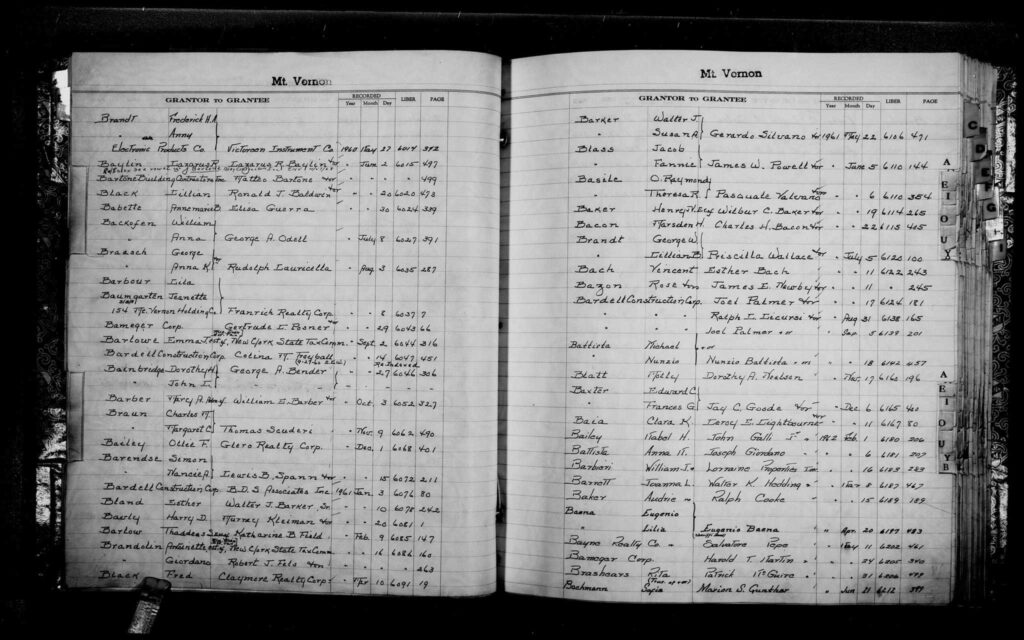 Mt. Vernon
GRANTOR TO GRANTEE RECORDED LIBER PAGE
Year Month Day
Brandt Frederick H.A.
" Anny
Electronic Products Co. Victoreen Instrument Co 1960 May 27 6014 382
Baylin Lazarus R. Lazarus R. Baylin " June 2 6015 497
Bartone Building Contractors Inc. Matteo Bartone " " " 499
Black Lillian Ronald J. Baldwin " " 20 6020 473
Babette Annemarie B. Elisa Guerra " " 30 6024 339
Backofen William
" Anna George A. Odell " July 8 6027 391
Braasch George
" Anna K. Rudolph Lauricella " Aug 3 6035 287
Barbour Lila
Baumgarten Jeanette
154 Mt. Vernon Holding Co. Franrich Realty Corp. " " 8 6037 7
Bameger Corp. Gertrude E. Posner " " 29 6043 66
Barlowe Emma New York State Tax Comm. " Sept. 2 6044 316
Bardell Construction Corp. " " 14 6047 451
Bainbridge Dorothy H. George A. Bender " " 27 6046 306
" John I.
Barber Mary A. William E. Barber " Oct. 3 6052 327
Braun Charles M.
" Margaret C. Thomas Scuderi " Nov. 9 6062 490
Bailey Ollie F. Glero Realty Corp. " Dec. 1 6068 401
Barendse Simon
" Nancie A. Lewis B. Spann " " 15 6072 211
Bardell Construction Corp. B.D.S. Associates Inc. 1961 Jan. 3 6076 80
Bland Esther Walter J. Barker, Sr. " " 10 6078 242
Bawly Harry D. Murney Kleiman " " 20 6081 1
Barlow Thaddeus Katharine B. Field " Feb. 9 6085 147
Brandolin Antoinette New York State Tax Comm. " " 16 6086 160
" Giordano Robert J. Felo " " " 263
Black Fred Claymore Realty Corp. " Mar 10 6091 19
Mt. Vernon
GRANTOR TO GRANTEE RECORDED LIBER PAGE
Year Month Day
Barker Walter J.
" Susan A. Gerardo Silvano 1961 May 22 6106 471
Blass Jacob
" Fannie James W. Powell " June 5 6110 144
Basile O. Raymond
" Theresa R. Pasquale Valvano " " 6 6110 354
Baker Henry Wilbur C. Baker " " 19 6114 265
Bacon Marsden H. Charles H. Bacon " " 22 6115 405
Brandt George W.
" Lillian B. Priscilla Wallace " July 5 6120 100
Bach Vincent Esther Bach " " 11 6122 243
Bazon Rose James E. Newby " " 11 " 245
Bardell Construction Corp. Joel Palmer " " 17 6124 181
" Ralph E. " Aug 31 6138 165
" Joel Palmer " Sep. 5 6139 201
Battista Michael
" Nunzio Nunzio Battista " " 18 6142 457
Blatt Molly Dorothy A. Neelsen " Nov. 17 6162 196
Baxter Edward C.
" Frances G. Jay C. Goode " Dec 6 6165 460
Baia Clara K. Leroy E. Lightbourne " " 11 6167 80
Bailey Isabel H. John Galli 1962 Feb 1 6180 206
Battista Anna M. Joseph Giordano " " 6 6181 307
Barbieri William J. Lorraine Properties Inc. " " 16 6183 283
Barrott Joanna L. Walter K. Hodding " Mar 8 6187 467
Baker Audrie Ralph Cooke " " 15 6189 189
Baena Eugenio
" Lilia Eugenio Baena " Apr. 20 6197 483
Bayne Realty Co. Salvatore Pepe " May 11 6202 461
Bameger Corp. Harold T. Martin " " 24 6205 340
Brashears Rita Patrick McGuire " " 31 6206 477
Bachmann Sofie Marion S. Gunther " Jun 21 6212 397
A
E
I
O
U
Y
A
E
I
O
U
Y
B
C
D
E
F
G